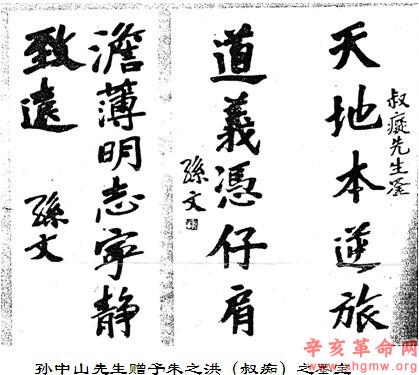 叔癡先生
天地本逆旅
道義憑仔肩
孫文
澹薄明志寧静
致遠
孫文
辛亥革命网
www.xhgmw.org
孙中山先生赠予朱之洪（叔痴）之墨宝